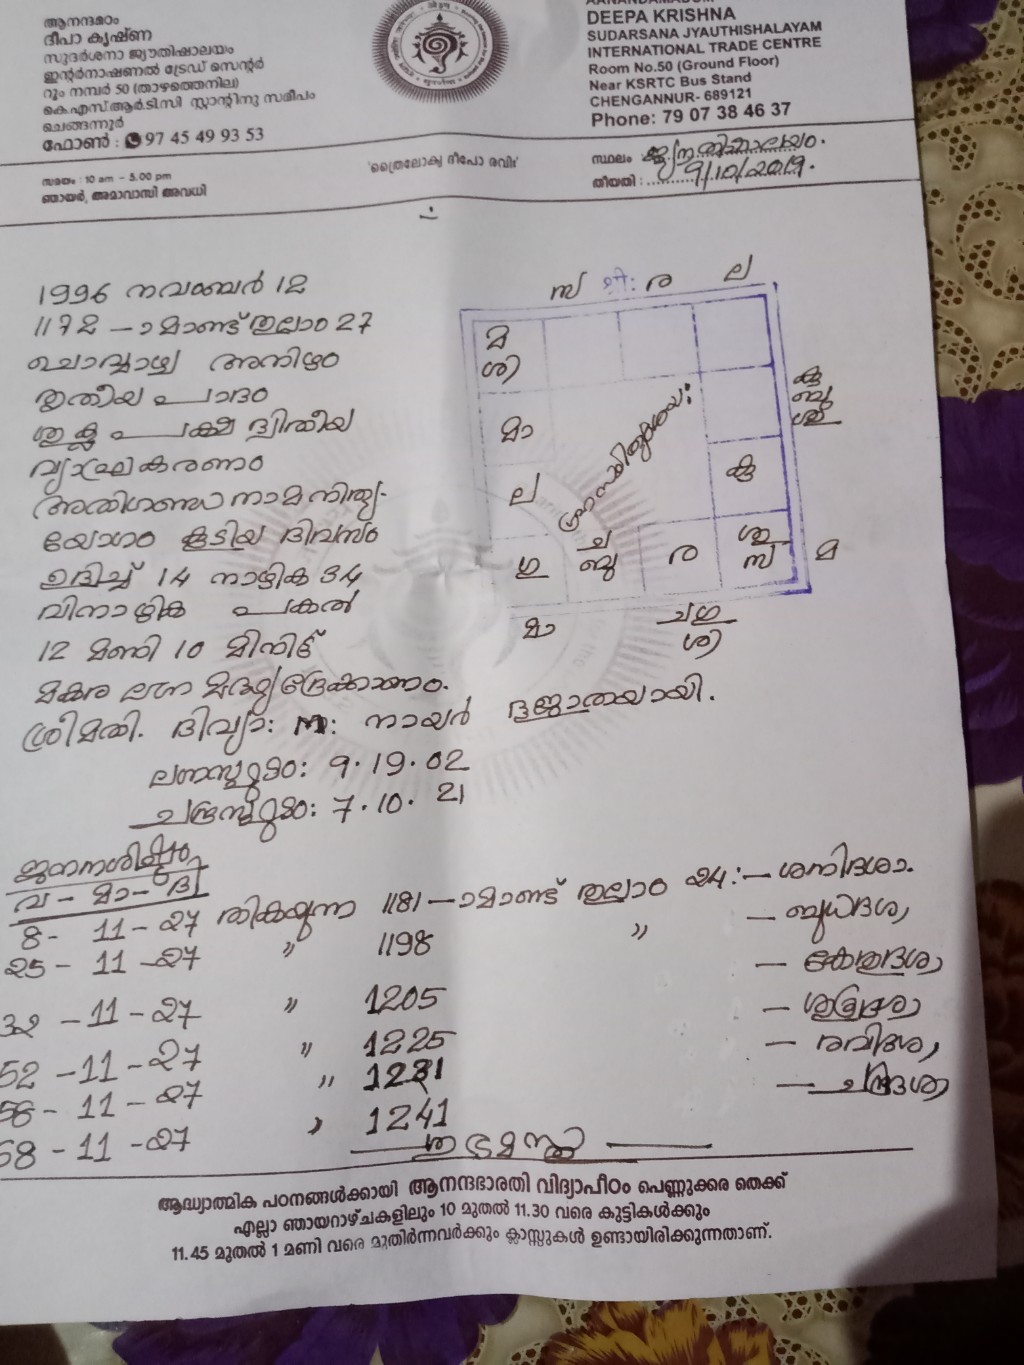 ആനന്ദമഠം
ദീപാ കൃഷ്ണ
സുദർശനാ ജ്യൗതിഷാലയം
ഇന്റർനാഷണൽ ട്രേഡ് സെന്റർ
റൂം നമ്പർ 50 (താഴത്തെനില)
കെ.എസ്.ആർ.ടി.സി സ്റ്റാന്റിനു സമീപം
ചെങ്ങന്നൂർ
ഫോൺ : 97 45 49 93 53
DEEPA KRISHNA
SUDARSANA JYAUTHISHALAYAM
INTERNATIONAL TRADE CENTRE
Room No.50 (Ground Floor)
Near KSRTC Bus Stand
CHENGANNUR- 689121
Phone: 79 07 38 46 37
സമയം : 10 am - 5.00 pm
ഞായർ, അമാവാസി അവധി
'ത്രൈലോക്യ ദീപോ രവിഃ'
സ്ഥലം
തീയതി : 9/10/2019.
1996 നവമ്പർ 12
1172 -ാമാണ്ട് തുലാം 27
ചൊവ്വാഴ്ച അനിഴം
തൃതീയ പാദം
ശുക്ല പക്ഷ ദ്വിതീയ
വ്യാഘ്രകരണം
അതിഗണ്ഡനാമനിത്യ-
യോഗം കൂടിയ ദിവസം
ഉദിച്ച് 14 നാഴിക 34
വിനാഴിക പകൽ
12 മണി 10 മിനിട്ട്
മകര ലഗ്ന മദ്ധ്യദ്രേക്കാണം.
ശ്രീമതി. ദിവ്യാ: M: നായർ ദൃജാതയായി.
ലഗ്നസ്ഫുടം: 9.19.02
ചന്ദ്രസ്ഫുടം: 7.10.21
സ ശ്രീ: ര ല
മ
ശി
മാ
ല
ഗു
ച
ബു
ര
ശു
സ
കു
കു
ബു
ശു
മ
മാ
ച ഗു
ശി
ജനനശിഷ്ടം
വ - മാ - ദി
8- 11-27 തികയുന്ന 1181-ാമാണ്ട് തുലാം 24:- ശനിദശാ.
25 - 11 -27 " 1198 " - ബുധദശ,
32 -11-27 " 1205 - കേതുദശാ
52 -11-27 " 1225 - ശുക്രദശാ
58- 11 -27 " 1231 - രവിദശ,
68 - 11 -27 " 1241 - ചന്ദ്രദശ
ശുഭമസ്തു
ആദ്ധ്യാത്മിക പഠനങ്ങൾക്കായി ആനന്ദഭാരതി വിദ്യാപീഠം പെണ്ണുക്കര തെക്ക്
എല്ലാ ഞായറാഴ്ചകളിലും 10 മുതൽ 11.30 വരെ കുട്ടികൾക്കും
11.45 മുതൽ 1 മണി വരെ മുതിർന്നവർക്കും ക്ലാസ്സുകൾ ഉണ്ടായിരിക്കുന്നതാണ്.